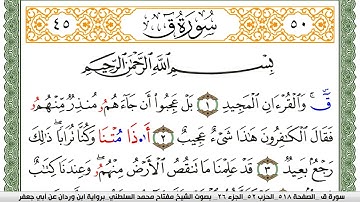 ٥٠ سُورَةُ قٓ ٤٥
بِسْمِ ٱللَّهِ ٱلرَّحْمَٰنِ ٱلرَّحِيمِ
قٓۚ وَٱلْقُرْءَانِ ٱلْمَجِيدِ ١ بَلْ عَجِبُوٓا۟ أَن جَآءَهُمُۥ مُنذِرٌ مِّنْهُمُۥ
فَقَالَ ٱلْكَٰفِرُونَ هَٰذَا شَىْءٌ عَجِيبٌ ٢ أَ.ذَا مُتْنَا وَكُنَّا تُرَابًاۖ ذَٰلِكَ
رَجْعٌۢ بَعِيدٌ ٣ قَدْ عَلِمْنَا مَا تَنقُصُ ٱلْأَرْضُ مِنْهُمُۥۖ وَعِندَنَا كِتَٰبٌ
سورة ق ـ الصفحة ٥١٨ الحزب ٥٢ الجزء ٢٦ بصوت الشيخ مفتاح محمد السلطني ـ برواية ابن وردان عن أبي جعفر